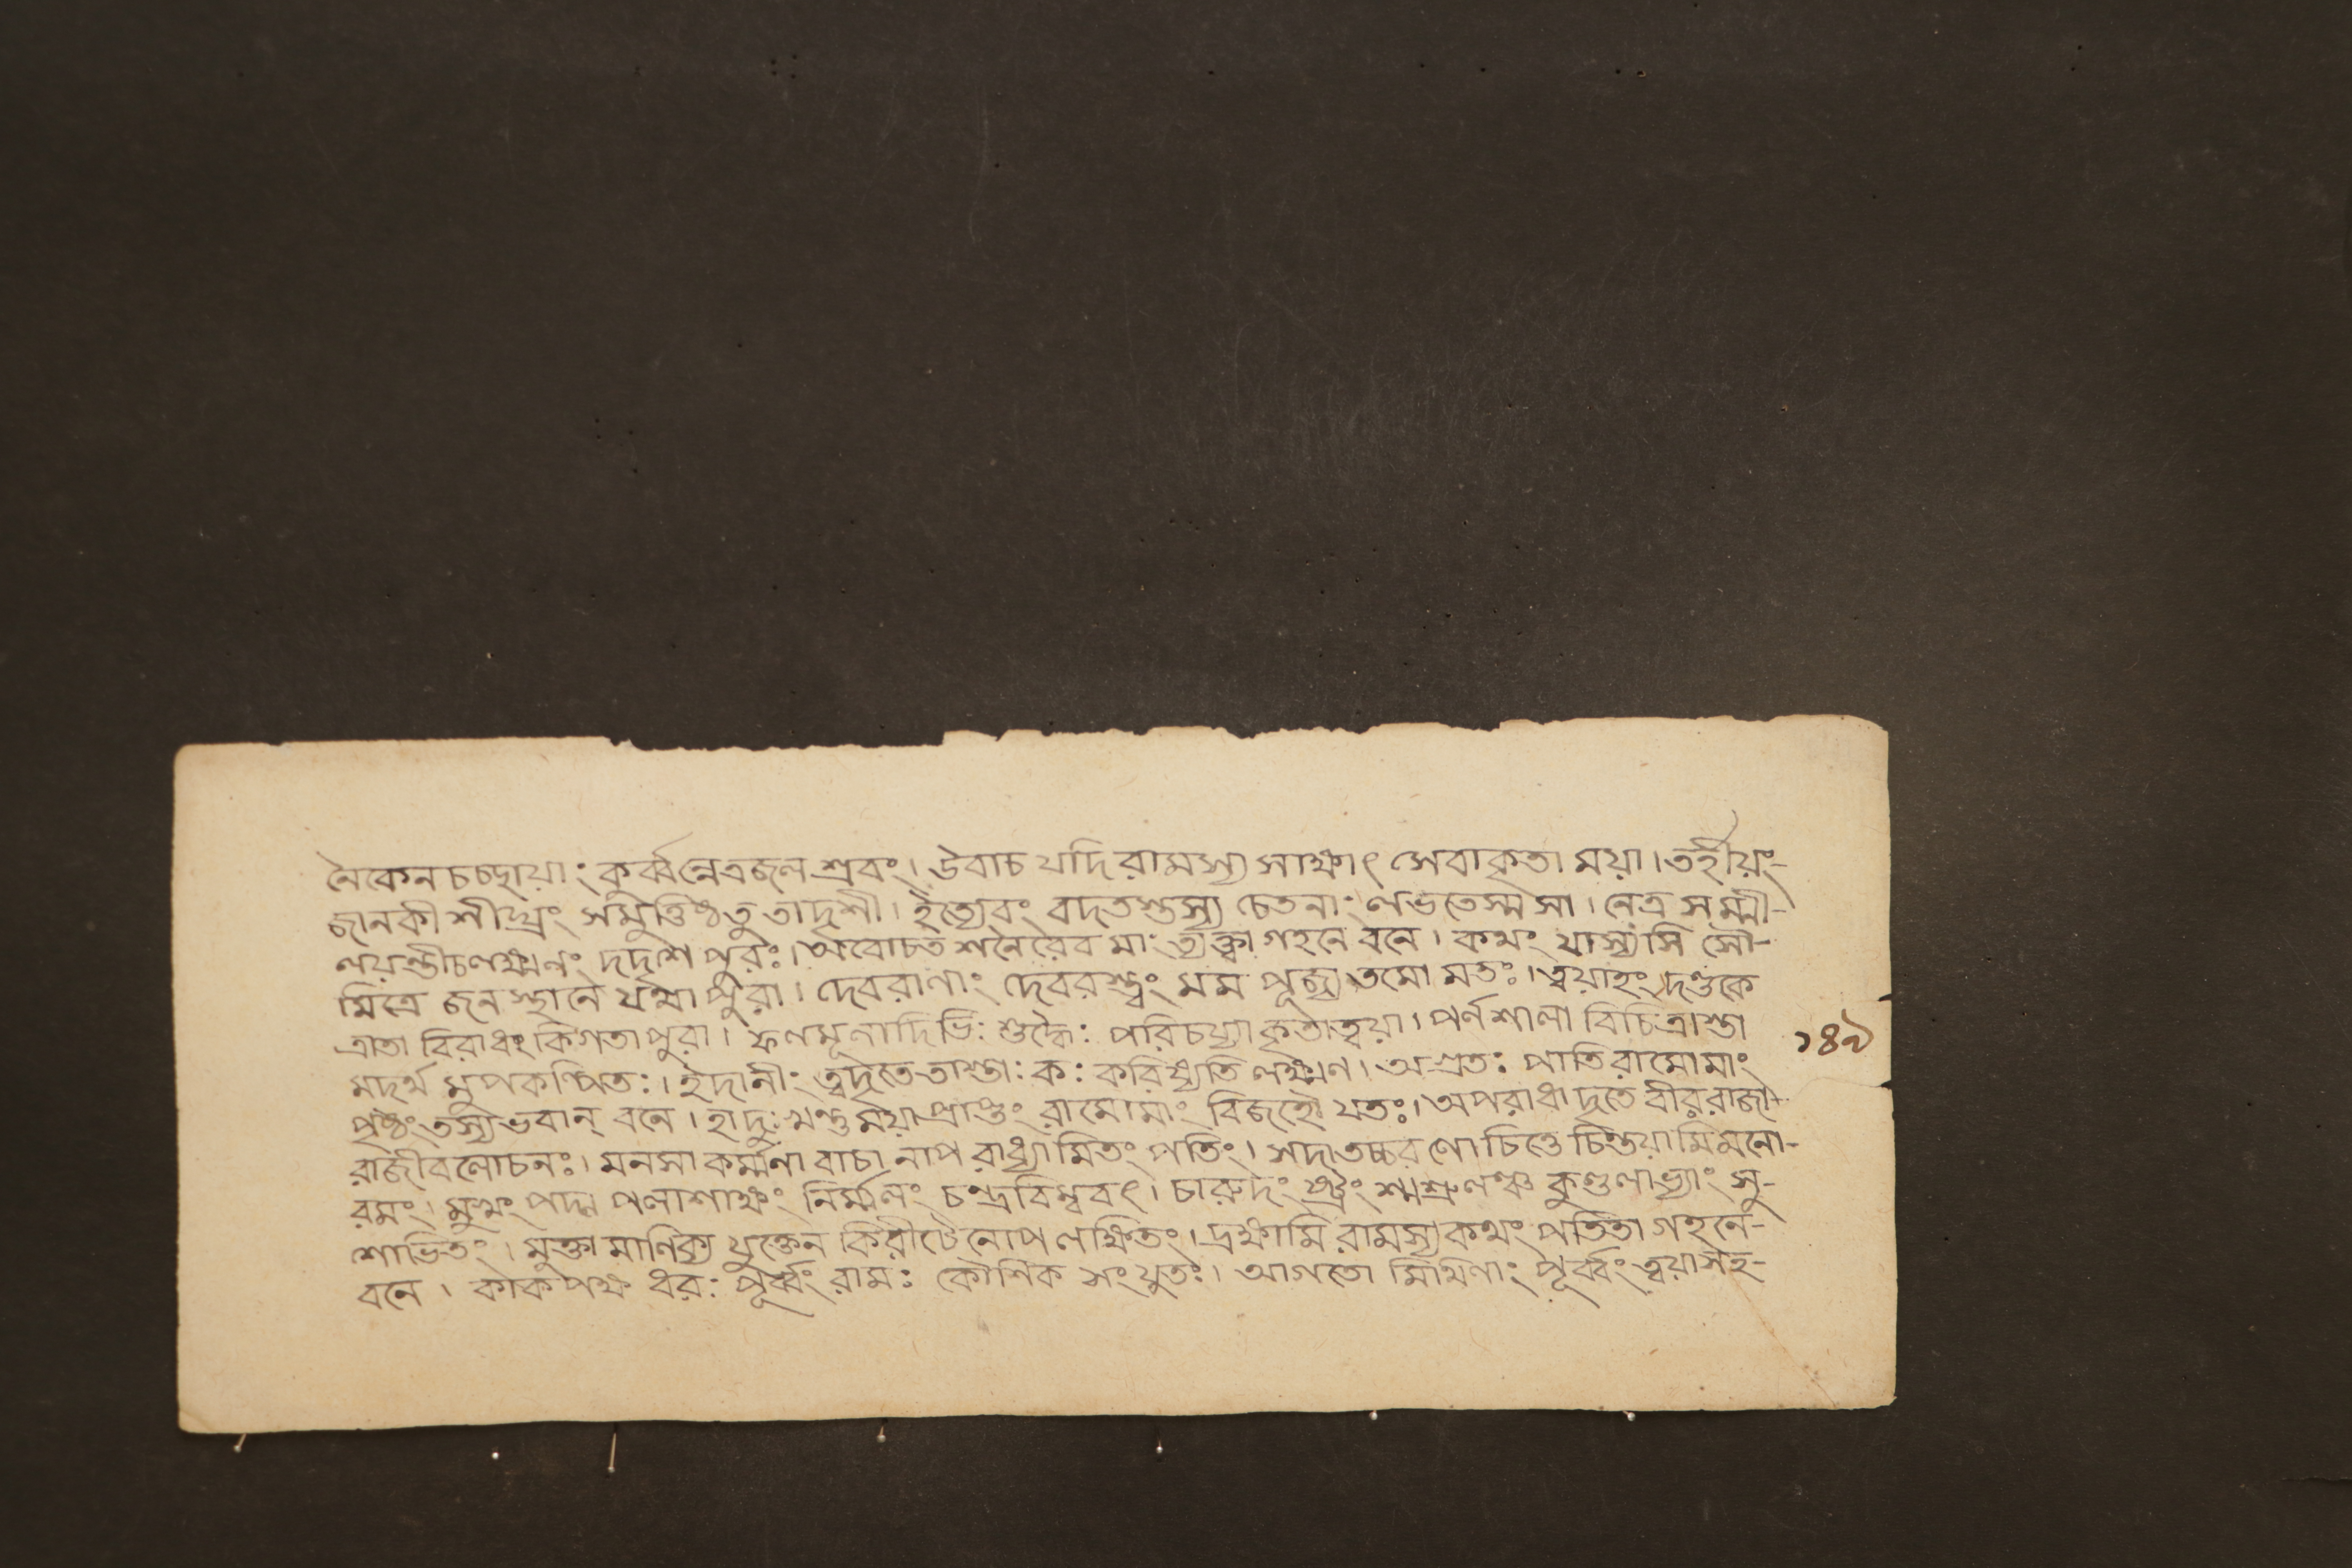 নৈকেন চচ্ছায়াং কুর্ব্বন্নেত্রজল শ্রবং। উবাচ যদি রামস্য সাক্ষাৎ সেবাকৃতা ময়া। তর্হীয়ং-
জানকী শীঘ্রং সমুত্তিষ্ঠতু তাদৃশী। ইত্যেবং বদতস্তস্য চেতনাং লভতেস্ম সা। নেত্র সম্মী-
লয়ন্তীচলক্ষ্মণং দদর্শ পুরঃ। অবোচত শনৈরেব মাং ত্যক্ত্বা গহনে বনে। কথং যাস্যসি সৌ-
মিত্রে জনস্থানে যথা পুরা। দেবরাণাং দেবরস্ত্বং মম পূজ্যতমো মতঃ। ত্বয়াহং দণ্ডকে
ত্রাতা বিরাধং কিগতা পুরা। ফলমূলাদিভিঃ শুদ্ধৈঃ পরিচর্য্যা কৃতাত্বয়া। পর্নশালা বিচিত্রাস্তা
মদর্থ মুপকল্পিতাঃ। ইদানীং ত্বদৃতে তাস্তাঃ কঃ করিষ্যতি লক্ষ্মণ। অগ্রতঃ পাতি রামোমাং
পৃষ্ঠং তস্যভবান্ বনে। হাদুঃখন্তু ময়াপ্রাপ্তং রামোমাং বিজহৌ যতঃ। অপরাধাদৃতে বীর রাজা-
রাজীবলোচনঃ। মনসা কর্ম্মণা বাচা নাপরাধ্যামিতং পতিং। সদাতচ্চরণো চিত্তে চিন্তয়ামিমনো-
রমং। মুখং পদ্ম পলাশাক্ষং নির্ম্মলং চন্দ্রবিম্ববৎ। চারুদংষ্ট্রং শ্মশ্রুলঞ্চ কুণ্ডলাভ্যাং সু-
শোভিতং। মুক্তা মাণিক্য যুক্তেন কিরীটেনোপলক্ষিতং। দ্রক্ষ্যামি রামস্য কথং পতিতা গহনে-
বনে। কাকপক্ষ ধরঃ পূর্ব্বং রামঃ কৌশিক সংযুতঃ। আগতো মিথিলাং পূর্ব্বং ত্বয়াসহ-
১৪৯